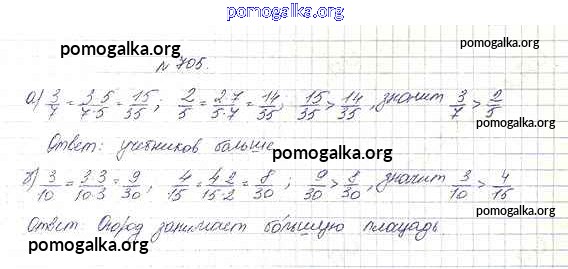 pomogalka.org
pomogalka.org
pomogalka.org
№ 705.
а) 3/7 = 3·5/7·5 = 15/35; 2/5 = 2·7/5·7 = 14/35; 15/35 > 14/35, значит 3/7 > 2/5
pomogalka.org
Ответ: учебников больше.
pomogalka.org
б) 3/10 = 3·3/10·3 = 9/30, 4/15 = 4·2/15·2 = 8/30; 9/30 > 8/30, значит 3/10 > 4/15
Ответ Огород занимает большую площадь.
pomogalka.org
pomogalka.org